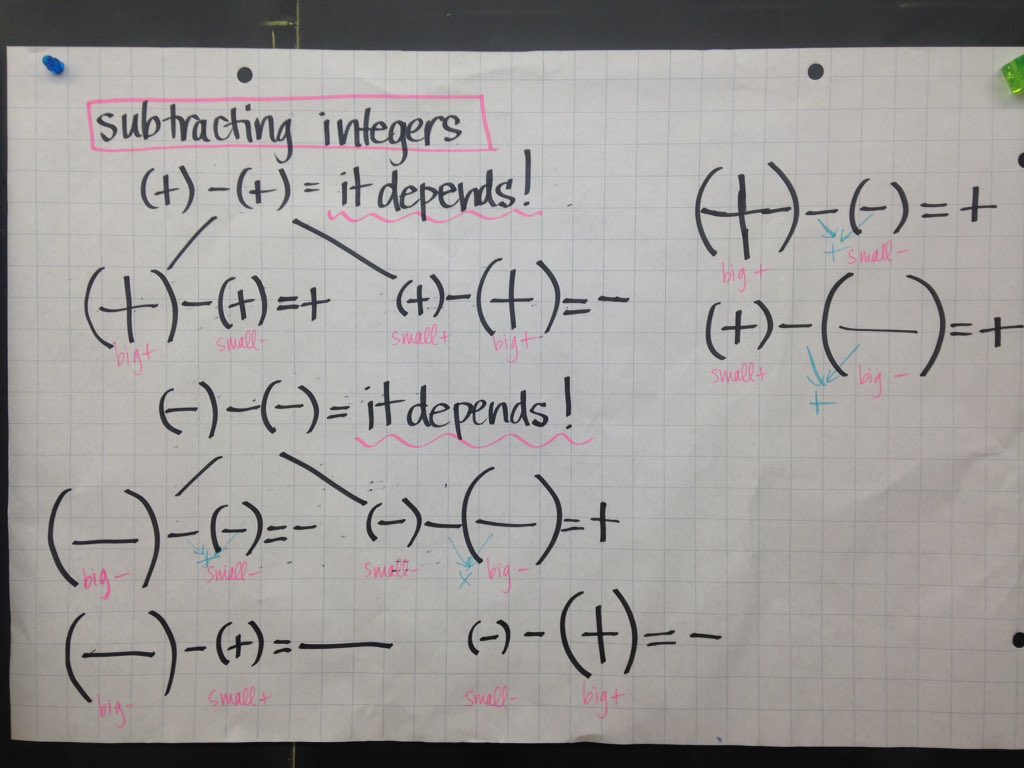 subtracting integers
(+) - (+) = it depends!
(+) - (+) = +
big + small -
(+) - (+) = -
small + big +
(-) - (-) = it depends!
(-) - (-) = -
+
big - small -
(-) - (-) = +
x
small - big -
(-) - (+) = -
big - small +
(-) - (+) = -
small - big +
(+) - (-) = +
+
big + small -
(+) - (-) = +
small + big -
+